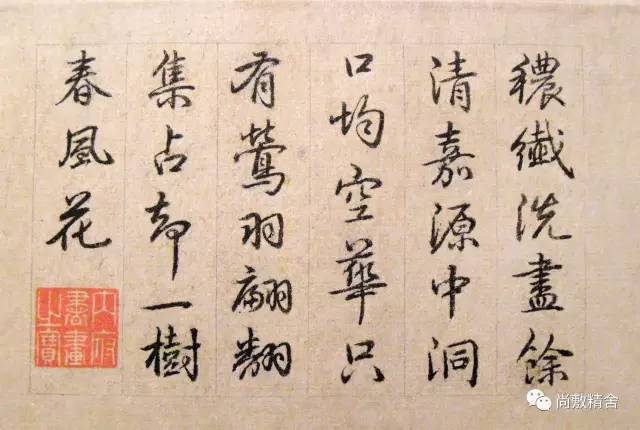 穠纖洗盡餘
清嘉源中洞
口均空華只
有鶯羽翩翻
集占却一樹
春風花
内府書畫之寶
尚敷精舍